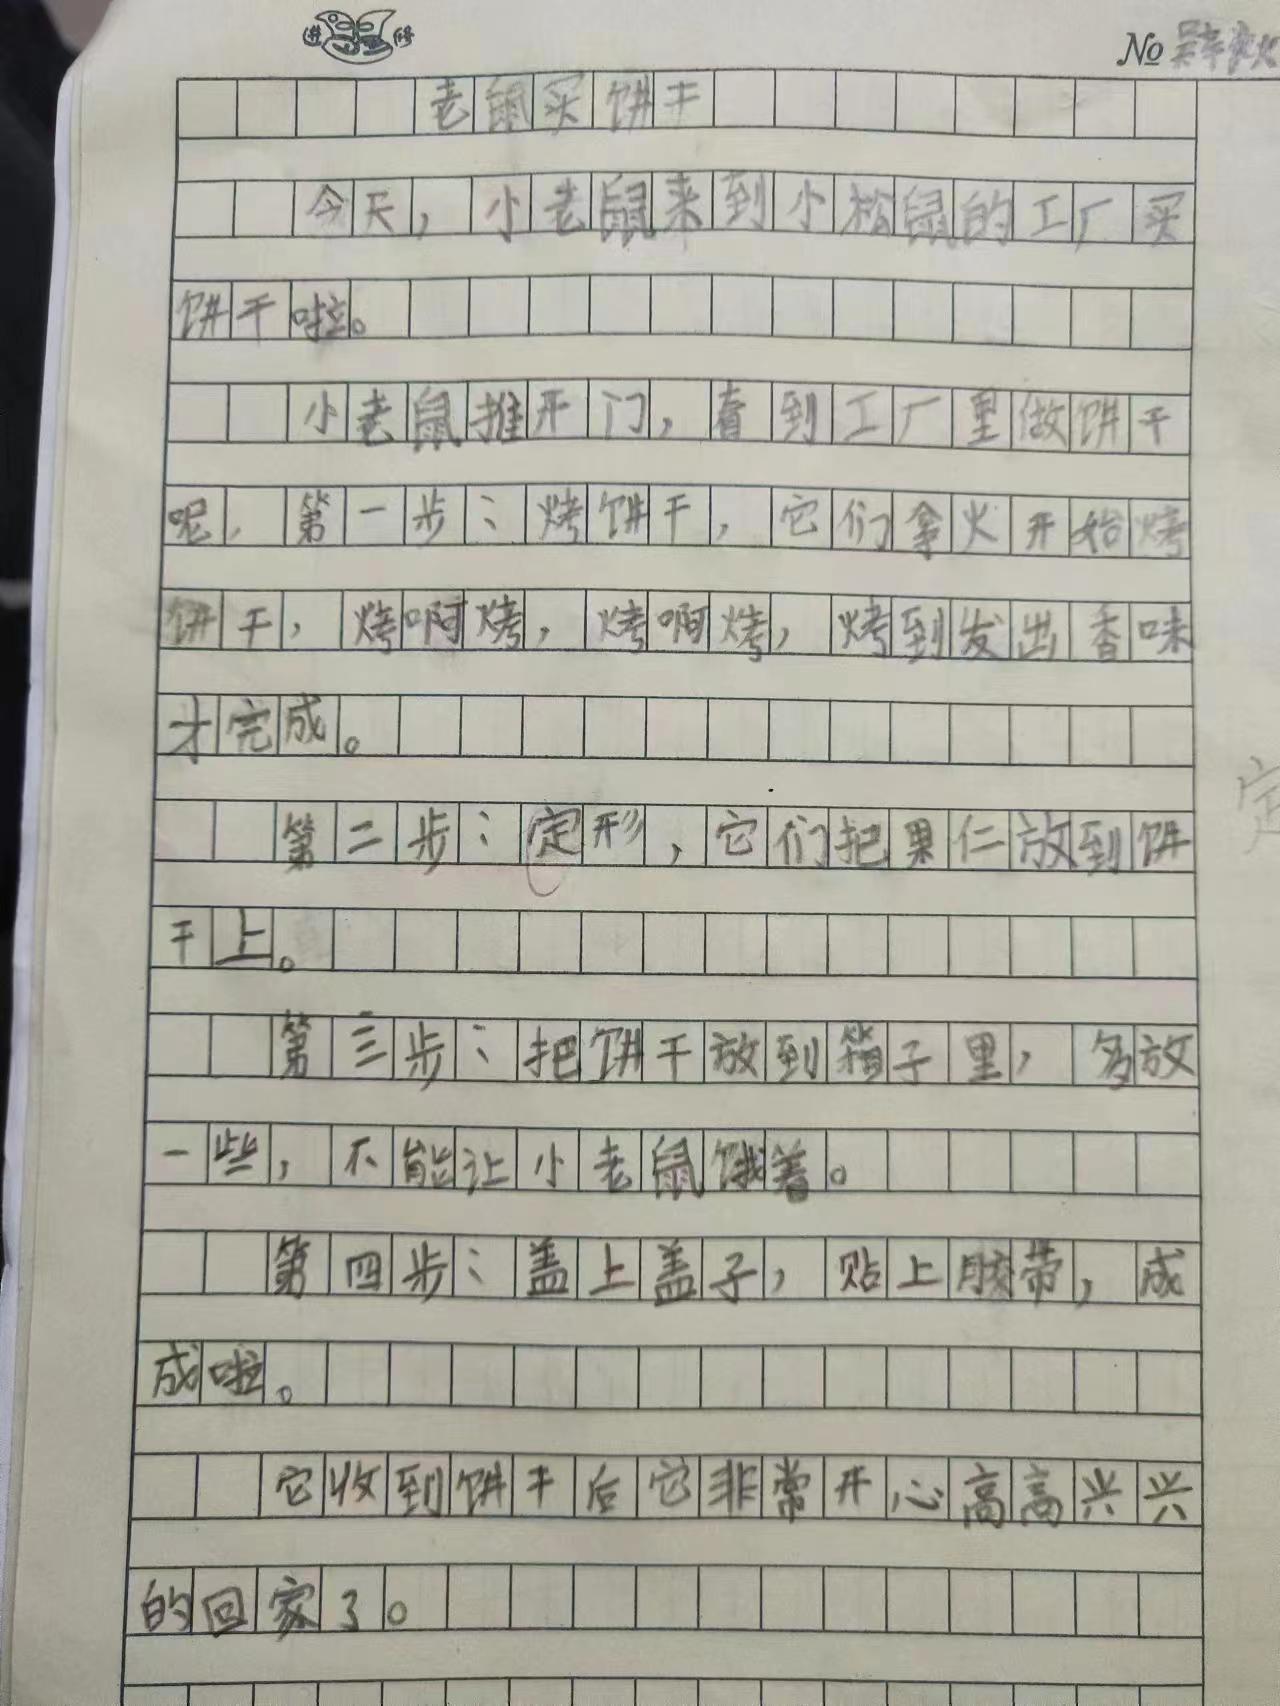 进修
No
老鼠买饼干
今天，小老鼠来到小松鼠的工厂买
饼干啦。
小老鼠推开门，看到工厂里做饼干
呢，第一步：烤饼干，它们拿火开始烤
饼干，烤啊烤，烤啊烤，烤到发出香味
才完成。
第二步：定形，它们把果仁放到饼
干上。
第三步：把饼干放到箱子里，多放
一些，不能让小老鼠饿着。
第四步：盖上盖子，贴上胶带，成
成啦。
它收到饼干后它非常开心高高兴兴
的回家了。
定